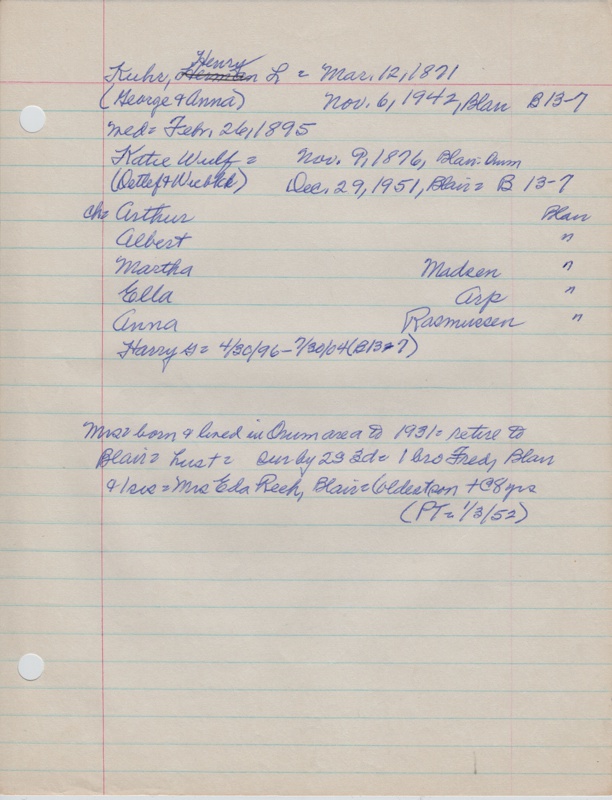 Henry
Kuhr, Herman L = Mar. 12, 1871
(George & Anna) Nov. 6, 1942, Blair B 13-7
med = Febr. 26, 1895
Katie Wulf = Nov. 9, 1876, Blair-Orum
(Detlef & Wiebke) Dec. 29, 1951, Blair = B 13-7
ch = Arthur Blair
Albert "
Martha Madsen "
Ella Arp "
Anna Rasmussen "
Harry G = 4/30/96 - 7/30/04 (B13-7)
Mrs = born & lived in Orum area to 1931 = retire to
Blair = Lust = sur by 2S 3d = 1 bro Fred, Blair
& 1 sis = Mrs Eda Reeh, Blair = (oldest son + @ 8 yrs
(PT = 1/3/52)